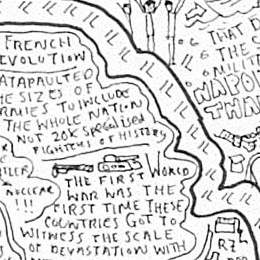 FRENCH
EVOLUTION
ATAPAULTED
HE SIZES OF
RMIES TO INCLUDE
THE WHOLE NATION
NOT 20K SPECIALISED
FIGHTERS OF HISTORY
THE FIRST WORLD
WAR WAS THE
FIRST TIME THESE
COUNTRIES GOT TO
WITNESS THE SCALE
OF DEVASTATION WITH
NUCLEAR
!!!
THAT D
THE S
MILIT
NAPOL
THAN
R7